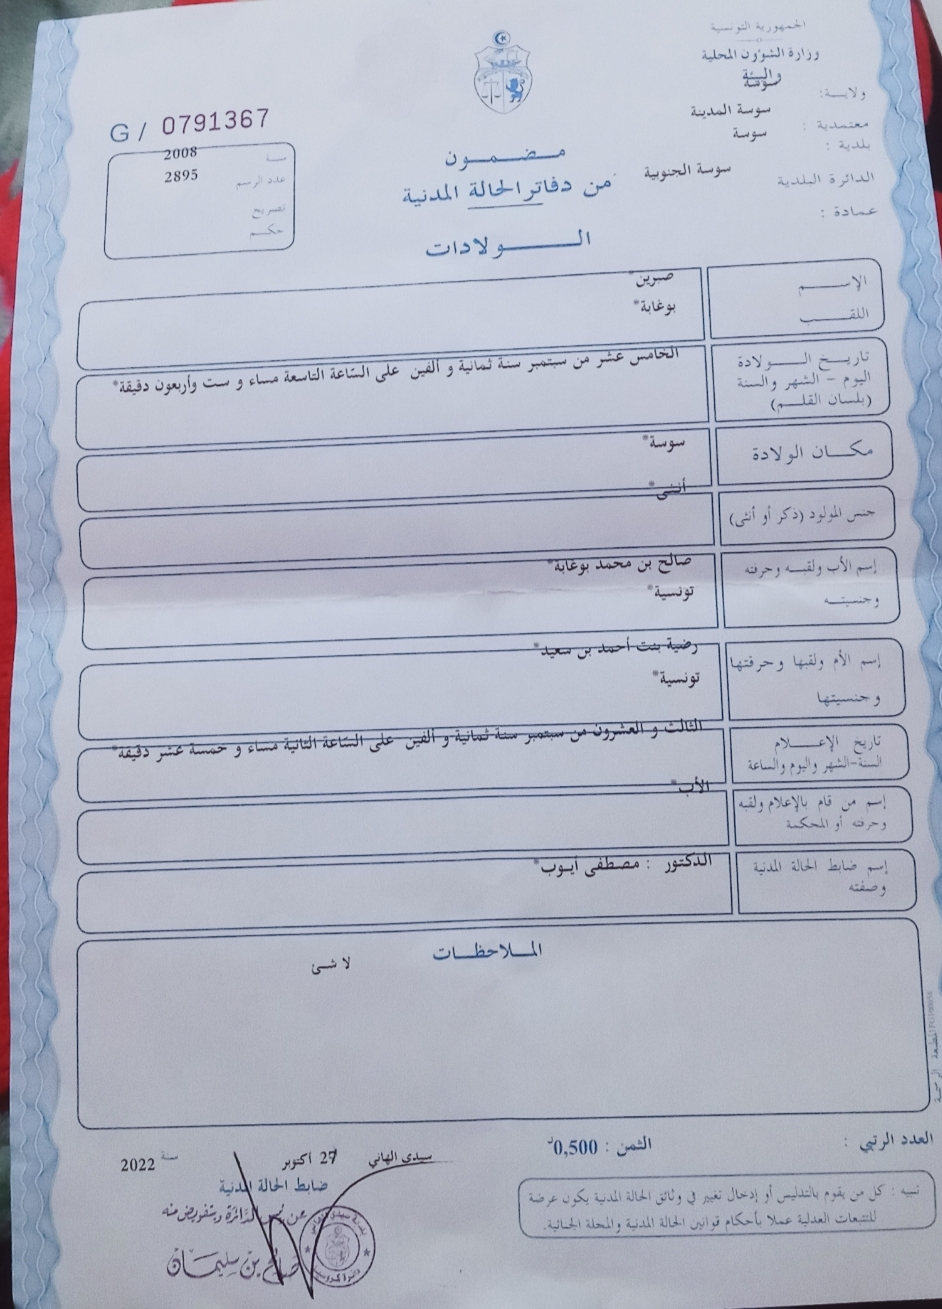 الجمهورية التونسية
وزارة الشؤون المحلية
والبيئة
ولاية: سوسة
معتمدية : سوسة المدينة
بلدية : سوسة
الدائرة البلدية سوسة الجنوبية
عمادة :
G / 0791367
سنة 2008
عدد الرسم 2895
تصريح
حكم
مضمون
من دفاتر الحالة المدنية
الولادات
الإسم صبرين*
اللقب بوغابة*
تاريخ الولادة
اليوم - الشهر والسنة
(بلسان القلم)
الخامس عشر من سبتمبر سنة ثمانية و ألفين على الساعة التاسعة مساء و ست وأربعون دقيقة*
مكان الولادة سوسة*
جنس المولود (ذكر أو أنثى) أنثى*
إسم الأب ولقبه وحرفته صالح بن محمد بوغابة*
وجنسيته تونسية*
إسم الأم ولقبها وحرفتها رضية بنت أحمد بن سعيد*
وجنسيتها تونسية*
تاريخ الإعلام
السنة-الشهر واليوم والساعة
الثالث و العشرون من سبتمبر سنة ثمانية و ألفين على الساعة الثانية مساء و خمسة عشر دقيقة*
إسم من قام بالإعلام ولقبه
وحرفته أو المحكمة
الأب*
إسم ضابط الحالة المدنية
وصفته
الدكتور : مصطفى أيوب*
الملاحظات
لا شئ
العدد الرتبي :
الثمن : 0,500د
سيدي الهاني 27 أكتوبر سنة 2022
ضابط الحالة المدنية
عن رئيس الدائرة وبتفويض منه
صالح بن سليمان
تنبيه : كل من يقوم بالتدليس أو إدخال تغيير في وثائق الحالة المدنية يكون عرضة
للتتبعات العدلية عملا بأحكام قوانين الحالة المدنية والمجلة الجنائية.